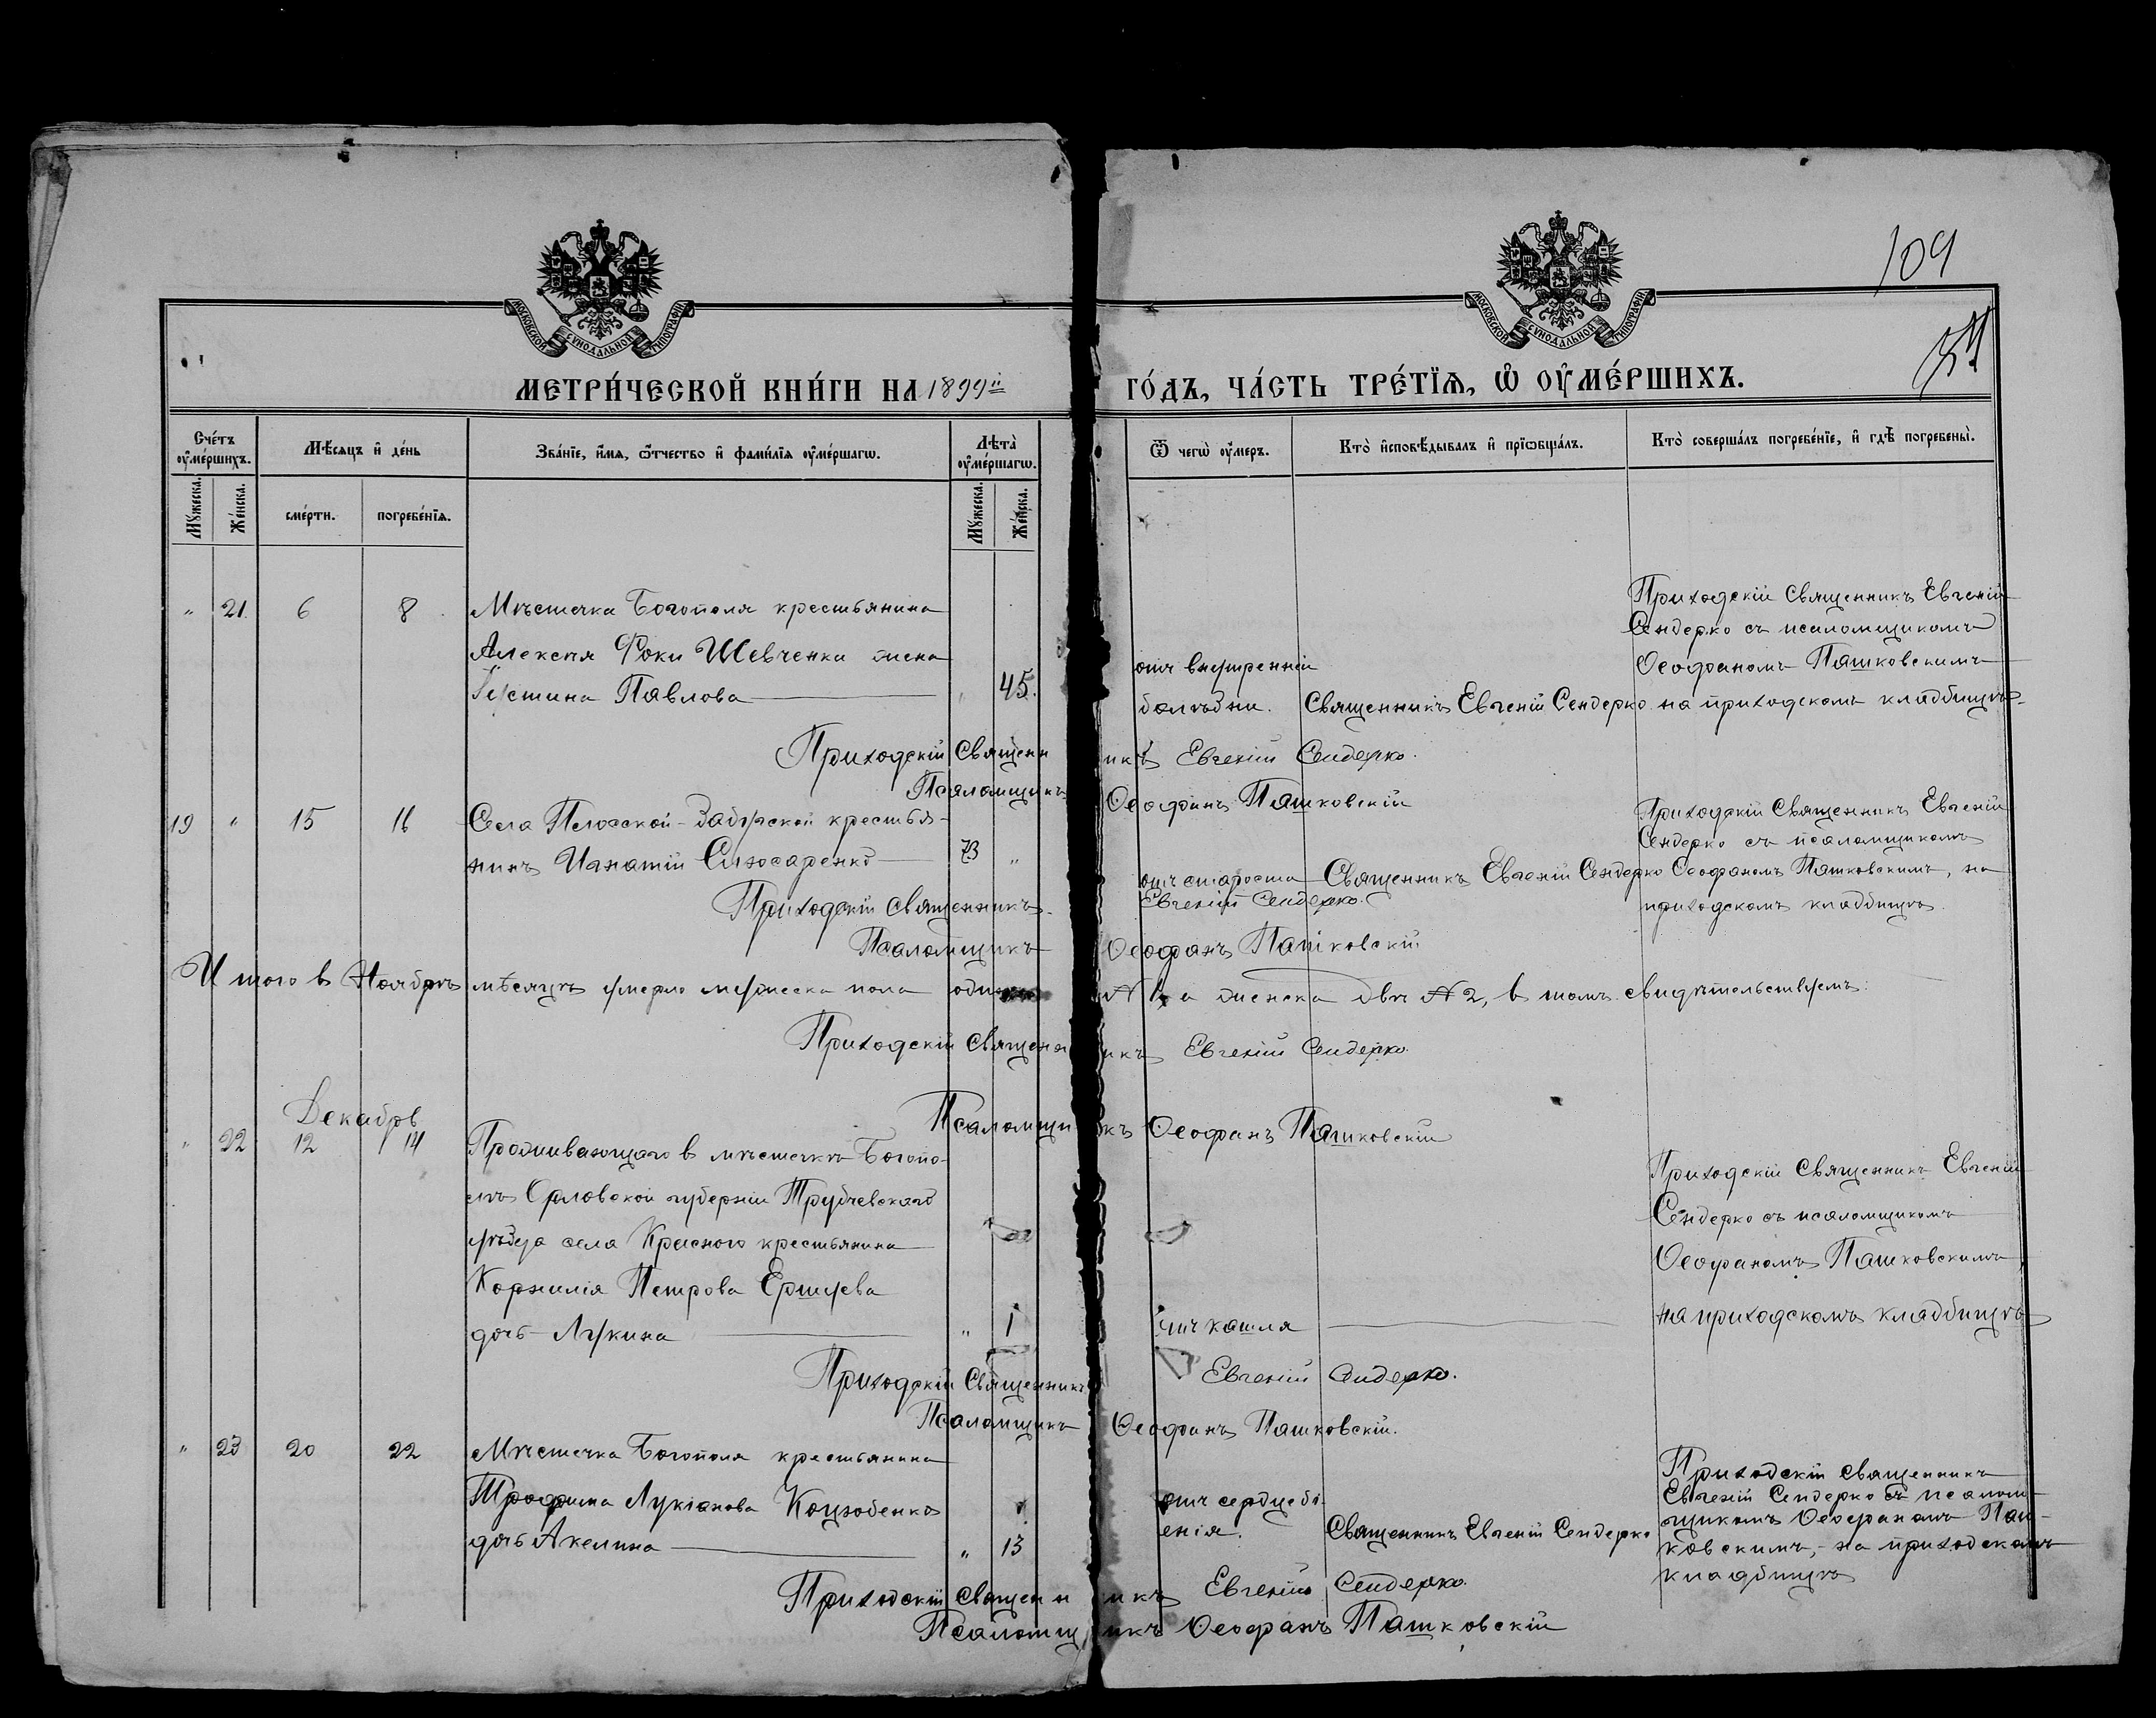 МОСКОВСКОЙ СѴНОДАЛЬНОЙ ТИПОГРАФІИ
МОСКОВСКОЙ СѴНОДАЛЬНОЙ ТИПОГРАФІИ
109
МЕТРИ́ЧЕСКОЙ КНИ́ГИ НА 1899й ГО́ДЪ, ЧА́СТЬ ТРЕ́ТЇѦ, Ѡ҆ ОУ҆МЕ́РШИХЪ.
Сче́тъ оу҆ме́ршихъ. Мѣ́сяцъ и҆ де́нь Зва́нїе, и҆́мѧ, ѻ҆́тчество и҆ фами́лїѧ оу҆ме́ршагѡ. Лѣта̀ оу҆ме́ршагѡ. Ѿ чегѡ̀ оу҆́меръ. Кто̀ и҆сповѣ́дывалъ и҆ прїѡбща́лъ. Кто̀ соверша́лъ погребе́нїе, и҆ гдѣ̀ погребены̀.
Мꙋ́жеска. Же́нска. сме́рти. погребе́нїѧ. Мꙋ́жеска. Же́нска.
" 21. 6 8 Мѣстечка Богополя крестьянина
Алексѣя Ѳоки Шевченки жена
Іустина Павлова " 45.
отъ внутренній
болѣзни. Священникъ Евгеній Сендерко
Приходскій Священникъ Евгеній
Сендерко съ псаломщикомъ
Ѳеофаномъ Пашковскимъ
на приходскомъ кладбищѣ.
Приходскій Священникъ Евгеній Сендерко.
Псаломщикъ Ѳеофанъ Пашковскій
19 " 15 16 Села Плоской-Забужской крестья-
нинъ Игнатій Слюсаренко 73 "
отъ старости Священникъ Евгеній Сендерко
Приходскій Священникъ Евгеній
Сендерко съ псаломщикомъ
Ѳеофаномъ Пашковскимъ, на
приходскомъ кладбищѣ.
Приходскій священникъ Евгеній Сендерко.
Псаломщикъ Ѳеофанъ Пашковскій
Итого в Ноябрѣ мѣсяцѣ умерло мужеска пола одинъ № 1 а женска двѣ № 2, в томъ свидѣтельствуемъ:
Приходскій Священникъ Евгеній Сендерко.
Псаломщикъ Ѳеофанъ Пашковскій
Декабрь
" 22 12 14 Проживающаго в мѣстечкѣ Богопо-
лѣ Орловской губерніи Трубчевскаго
уѣзда села Красного крестьянина
Корнилія Петрова Ершуева
дочь Лукина " 1
отъ кашля
Приходскій Священникъ Евгеній
Сендерко съ псаломщикомъ
Ѳеофаномъ Пашковскимъ,
на приходскомъ кладбищѣ
Приходскій Священникъ Евгеній Сендерко.
Псаломщикъ Ѳеофанъ Пашковскій.
" 23 20 22 Мѣстечка Богополя крестьянина
Трофима Лукіанова Коцюбенко
дочь Акелина " 13
отъ сердцебі-
енія. Священникъ Евгеній Сендерко
Приходскій священникъ
Евгеній Сендерко съ псалом-
щикомъ Ѳеофаномъ Паш-
ковскимъ, на приходскомъ
кладбищѣ
Приходскій Священникъ Евгеній Сендерко.
Псаломщикъ Ѳеофанъ Пашковскій